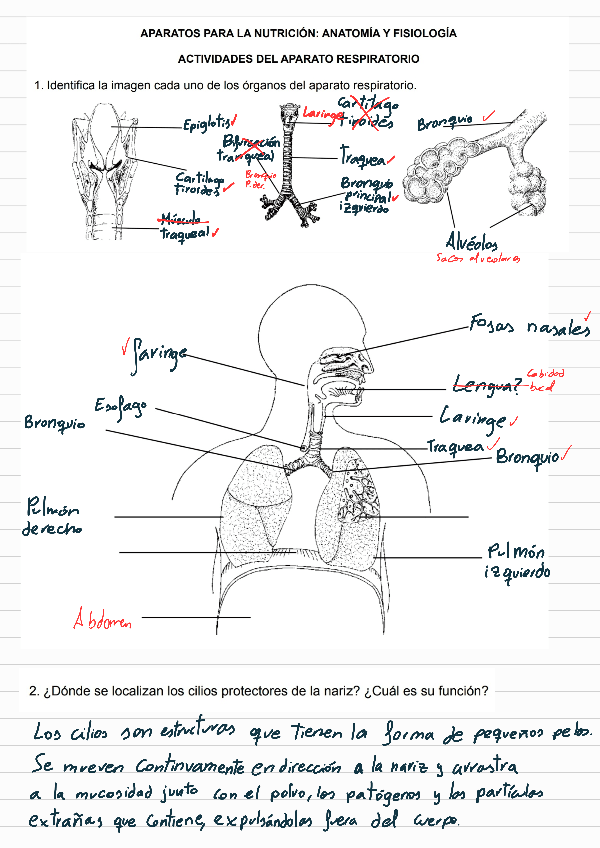 APARATOS PARA LA NUTRICIÓN: ANATOMÍA Y FISIOLOGÍA
ACTIVIDADES DEL APARATO RESPIRATORIO
1. Identifica la imagen cada uno de los órganos del aparato respiratorio.
Epiglotis
Cartílago
tiroides
Músculo
traqueal
Bifurcación
tranqueal
Bronquio
P. der.
Laringe
Cartílago
tiroides
Traquea
Bronquio
principal
izquierdo
Bronquio
Alvéolos
Sacos alveolares
Fosas nasales
faringe
Lengua?
Cabidad
bcal
Esofago
Laringe
Bronquio
Traquea
Bronquio
Pulmón
derecho
Pulmón
izquierdo
Abdomen
2. ¿Dónde se localizan los cilios protectores de la nariz? ¿Cuál es su función?
Los cilios son estructuras que tienen la forma de pequeños pelos.
Se mueven continuamente en dirección a la nariz y arrastra
a la mucosidad junto con el polvo, los patógenos y las partículas
extrañas que contiene, expulsándolas fuera del cuerpo.